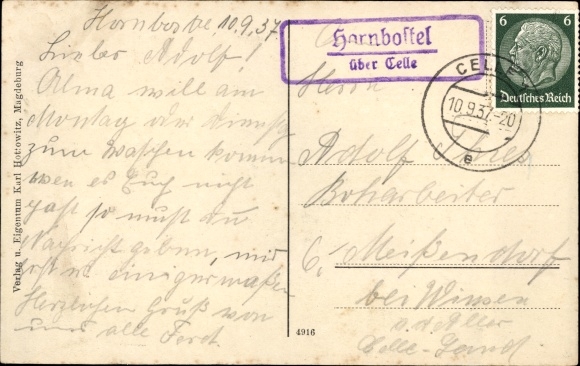 Hornbostel, 10.9.37
Lieber Adolf!
Alma will am
Montag oder Dienstag
zum waschen kommen
wen es Euch nicht
paßt so must du
Nachricht geben, mir
geht es einigermaßen
Herzlichen Gruß von
uns alle Ferd.
Verlag u. Eigentum Karl Horrowitz, Magdeburg
4916
Hornbostel
über Celle
CELLE
10.9.37.-20
e
6 6
Deutsches Reich
Herrn
Adolf
Meißendorf
bei Winsen
a.d. Aller
Celle-Land.